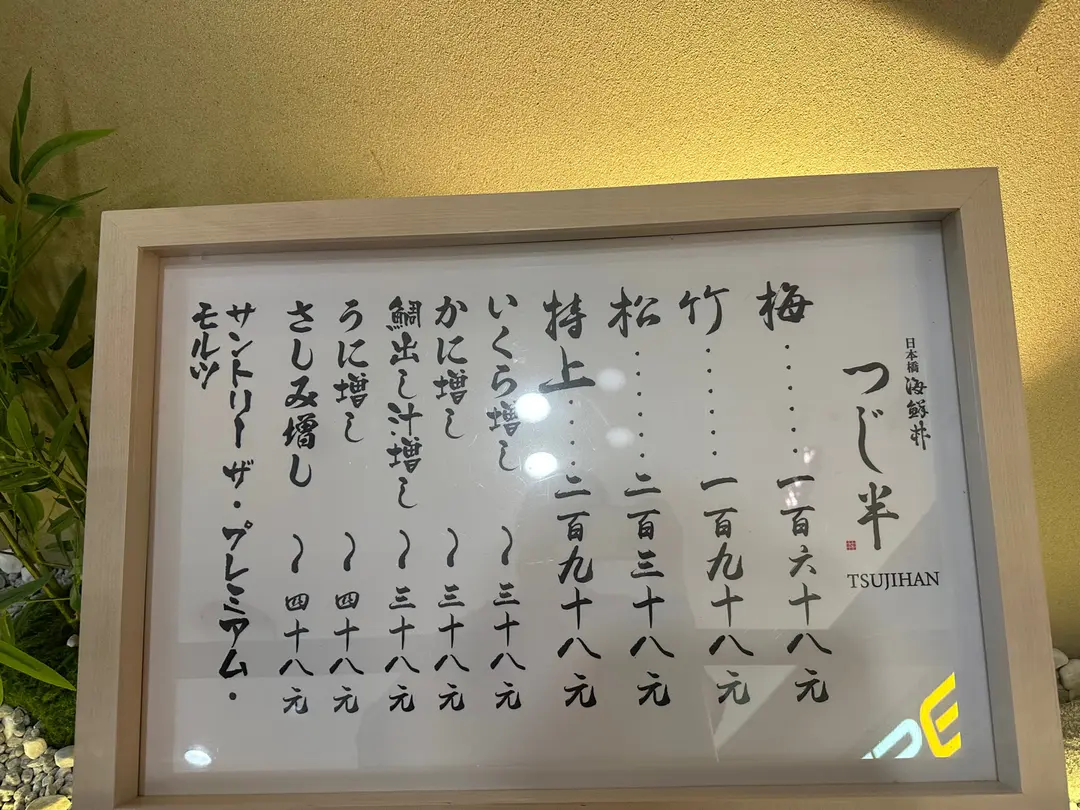 日本橋 海鮮丼
つじ半
TSUJIHAN
梅‥‥‥一百六十八元
竹‥‥‥一百九十八元
松‥‥‥二百三十八元
特上‥‥‥二百九十八元
いくら増し 〜 三十八元
かに増し 〜 三十八元
鯛出し汁増し 〜 三十八元
うに増し 〜 四十八元
さしみ増し 〜 四十八元
サントリー ザ・プレミアム・
モルツ